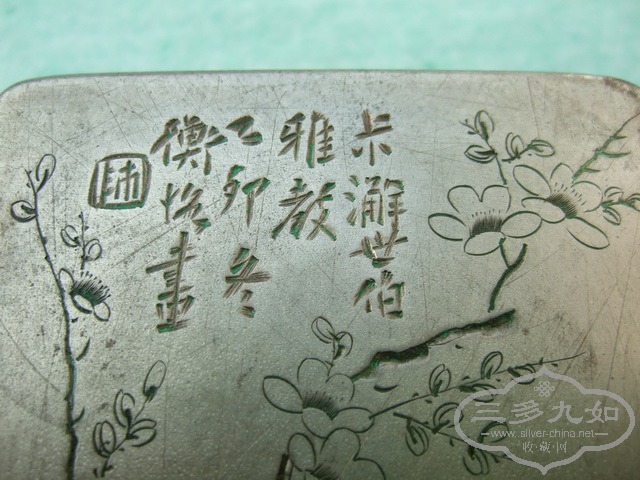 尗澥世伯
雅教
乙卯冬
衡恪畫
師
三多九如
www.silver-china.net
收·藏·网